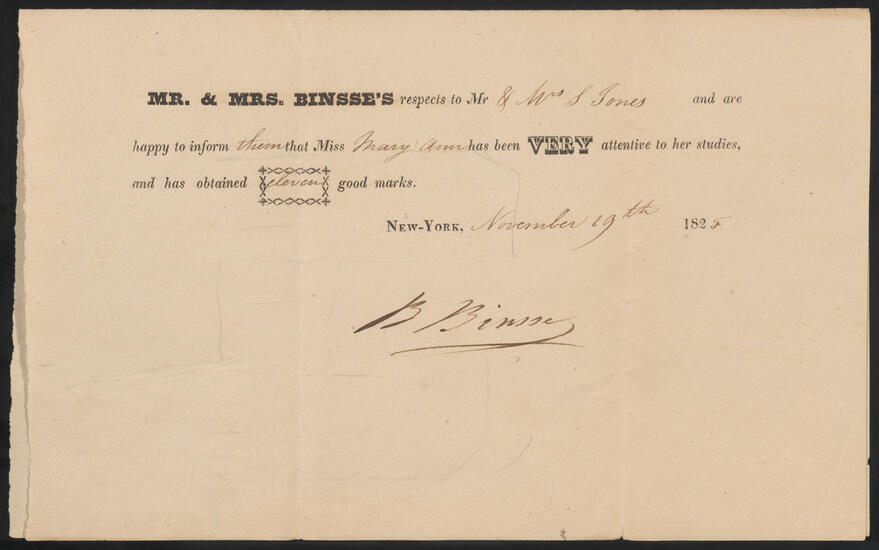 MR. & MRS. BINSSE'S respects to Mr & Mrs S Jones and are
happy to inform them that Miss Mary Ann has been VERY attentive to her studies,
and has obtained eleven good marks.
NEW-YORK, November 19th 1825
B Binsse